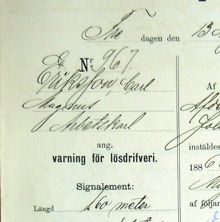 Tre dagen den 13
№ 967.
Eriksson Carl
Magnus
Arbetskarl
ang.
varning för lösdrifveri.
Signalement:
Längd 160 meter
Afto
Joh
instäldes
188
af följan